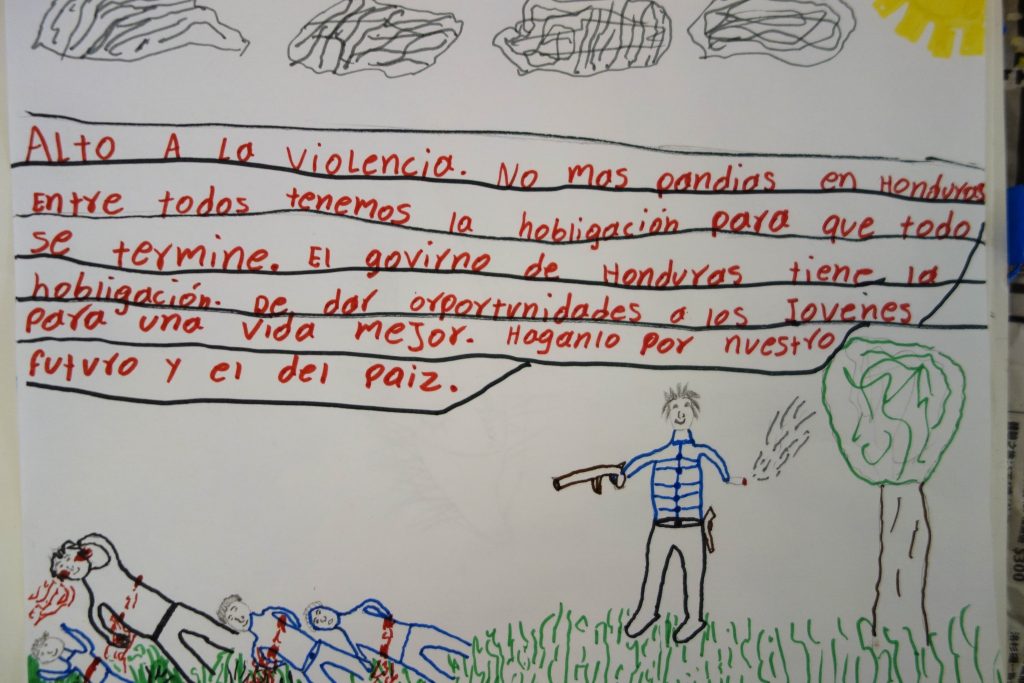 Alto A la violencia. No mas pandias en Honduras
Entre todos tenemos la hobligación para que todo
se termine. El govirno de Honduras tiene la
hobligación. De dar orportunidades a los Jovenes
para una vida mejor. Haganlo por nuestro
futuro y el del paiz.